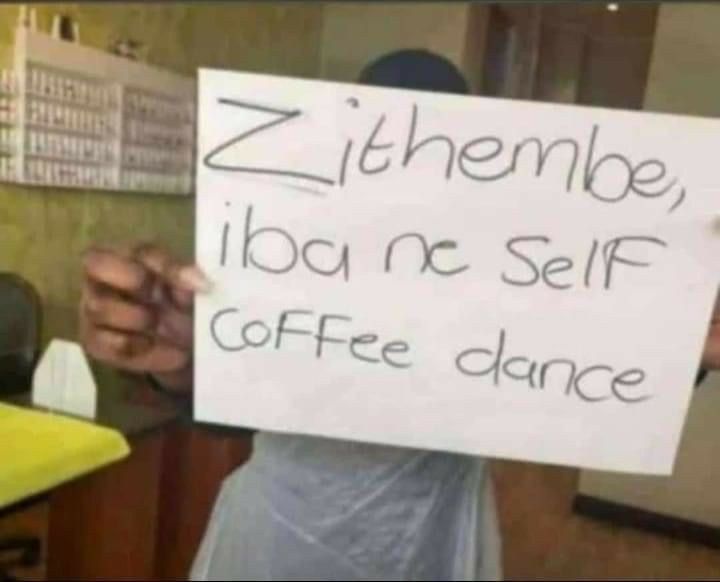 Zithembe,
iba ne Self
Coffee dance